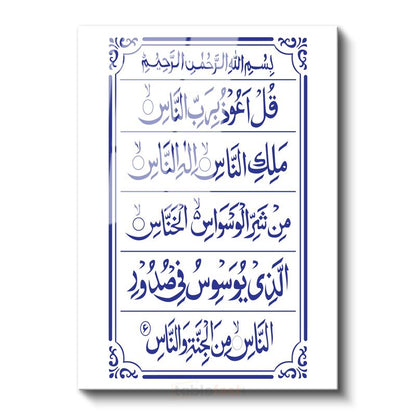 بِسْمِ اللهِ الرَّحْمٰنِ الرَّحِيْمِ
قُلْ اَعُوْذُ بِرَبِّ النَّاسِ ۙ
مَلِكِ النَّاسِ ۙ اِلٰهِ النَّاسِ ۙ
مِنْ شَرِّ الْوَسْوَاسِ ۙ الْخَنَّاسِ ۙ
الَّذِيْ يُوَسْوِسُ فِيْ صُدُوْرِ
النَّاسِ ۙ مِنَ الْجِنَّةِ وَالنَّاسِ